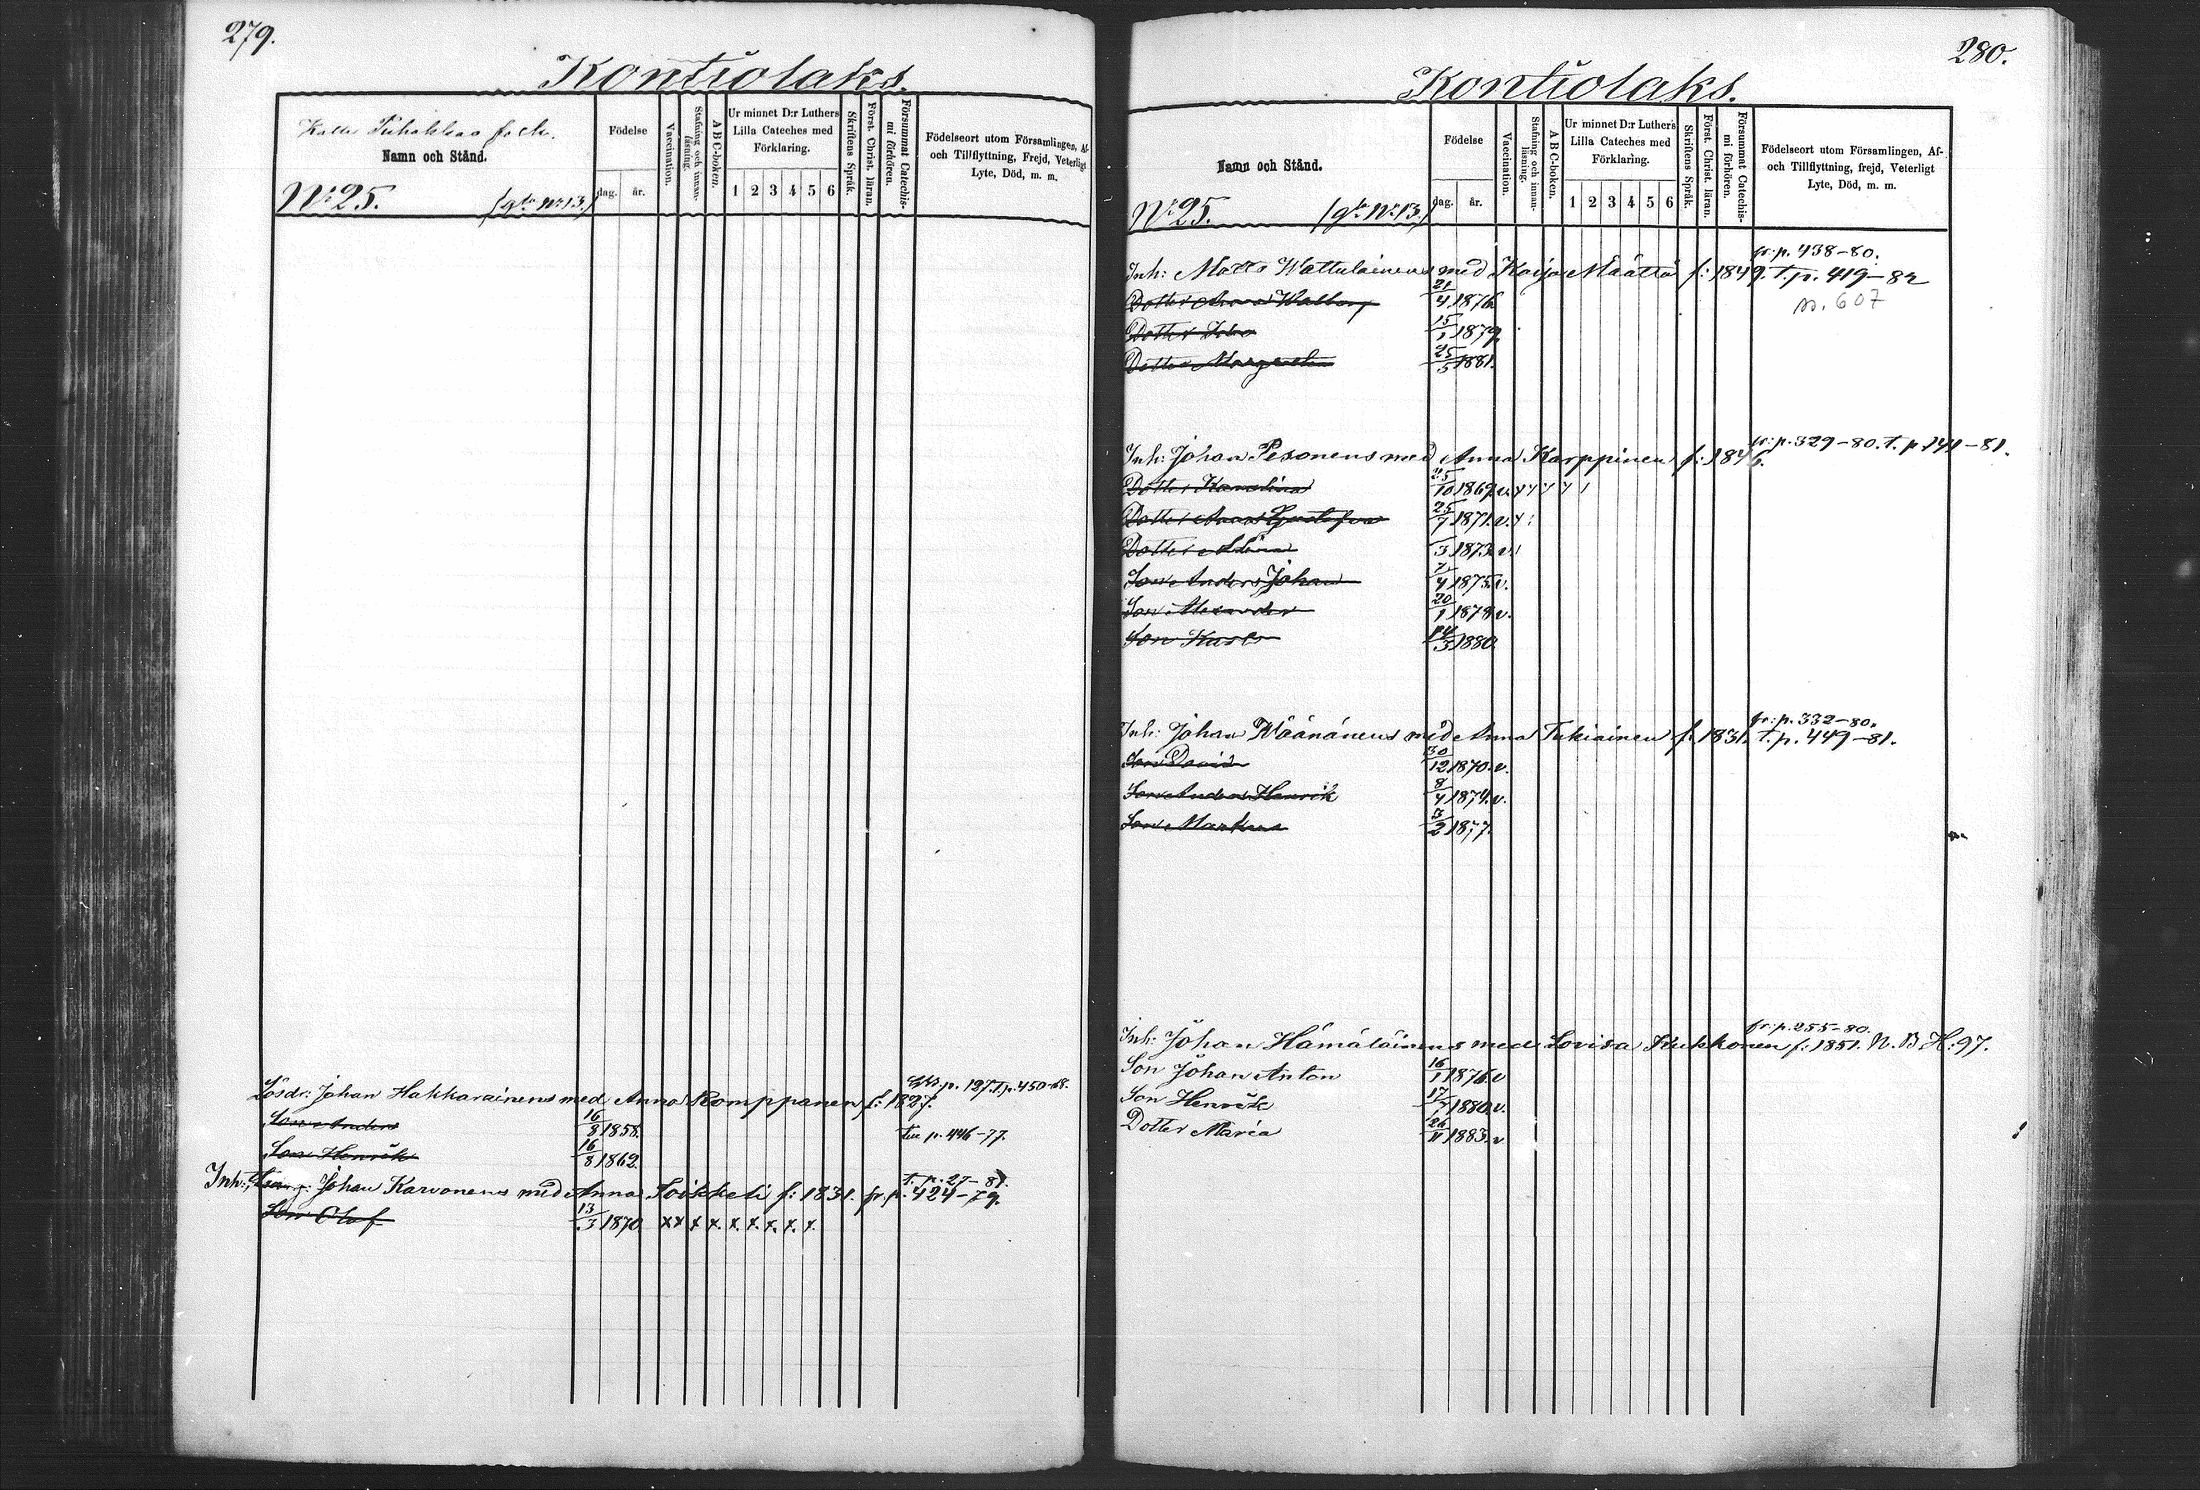 279.
Kontiolaks.
Namn och Stånd.
No 25.
(gl. No 13.)
Födelse
dag.
år.
Vaccination.
Stafning och innan-
läsning.
A B C-boken.
Ur minnet D:r Luthers
Lilla Cateches med
Förklaring.
1 2 3 4 5 6
Skriftens Språk.
Först. Christ. läran.
Försummat Catechis-
mi förhören.
Födelseort utom Församlingen, Af-
och Tillflyttning, Frejd, Veterligt
Lyte, Död, m. m.
p. 127. T. p. 450-68.
Lösdr: Johan Hakkarainens med Anna Romppanen f: 1827.
Son Anders 16/8 1858. p. 446-77.
Son Henrik 16/8 1862.
T. p. 27-81.
Inh: Johan Karvonens med Anna Soikkeli f: 1831. fr. p. 424-79.
Son Olof 13/3 1870. x x x x. x. x. x. x. x.
280.
Kontiolaks.
Namn och Stånd.
No 25.
(gl. No 13.)
Födelse
dag.
år.
Vaccination.
Stafning och innan-
läsning.
A B C-boken.
Ur minnet D:r Luthers
Lilla Cateches med
Förklaring.
1 2 3 4 5 6
Skriftens Språk.
Först. Christ. läran.
Försummat Catechis-
mi förhören.
Födelseort utom Församlingen, Af-
och Tillflyttning, frejd, Veterligt
Lyte, Död, m. m.
fr: p. 438-80.
Inh: Matts Wattulainens med Kaisa Määttä f: 1849. T. p. 419-82
Dotter Anna Walborg 21/4 1876
p. 607
Dotter 15/1 1879.
Dotter Margareta 25/5 1881.
fr: p. 329-80. T. p. 141-81.
Inh: Johan Pesonens med Anna Karppinen f: 1846.
Dotter Karolina 25/10 1869. v.
Dotter Anna Gustafva 25/7 1871. v.
Dotter 3 1873. v.
Son Anders Johan 7/4 1875. v.
Son Alexander 20/1 1878. v.
Son Karl 14/3 1880.
fr: p. 332-80.
Inh: Johan Wäänänens med Anna Tukiainen f. 1831. T. p. 449-81.
Son David 30/12 1870. v.
Son Anders Henrik 8/4 1874. v.
Son Markus 3/2 1877.
fr: p. 255-80.
Inh: Johan Hämäläinens med Lovisa Kukkonen f: 1851. N. B. H: 97.
Son Johan Anton 16/1 1876. v
Son Henrik 17/7 1880. v.
Dotter Maria 26/11 1883. v